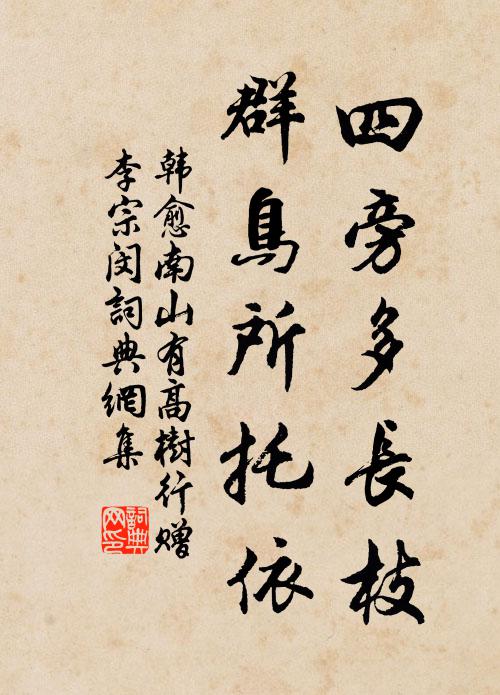 四旁多長枝
群鳥所托依
韩愈南山有高樹行赠
李宗闵詞典網集
詞典网印